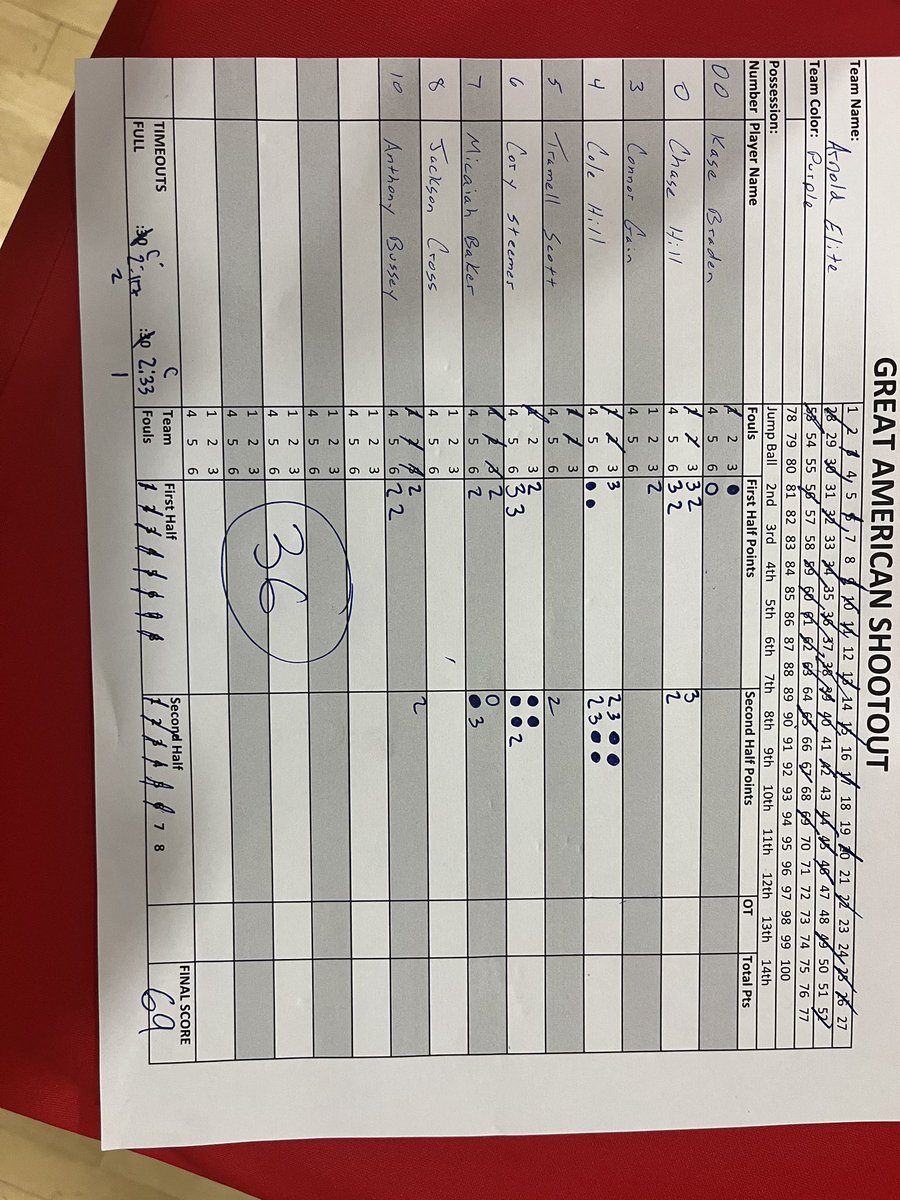 GREAT AMERICAN SHOOTOUT
Team Name: Arnold Elite
Team Color: Purple
1 2 3 4 5 6 7 8 9 10 11 12 13 14 15 16 17 18 19 20 21 22 23 24 25 26 27
28 29 30 31 32 33 34 35 36 37 38 39 40 41 42 43 44 45 46 47 48 49 50 51 52
53 54 55 56 57 58 59 60 61 62 63 64 65 66 67 68 69 70 71 72 73 74 75 76 77
78 79 80 81 82 83 84 85 86 87 88 89 90 91 92 93 94 95 96 97 98 99 100
Possession: Jump Ball 2nd 3rd 4th 5th 6th 7th 8th 9th 10th 11th 12th 13th 14th
Number Player Name Fouls First Half Points Second Half Points OT Total Pts
00 Kase Braden 1 2 3 ●
4 5 6 O
0 Chase Hill 1 2 3 3 2 3
4 5 6 3 2 2
3 Connor Gain 1 2 3 2
4 5 6
4 Cole Hill 1 2 3 3 2 3 ● ●
4 5 6 ● ● 2 3 ● ●
5 Tramell Scott 1 2 3 2
4 5 6
6 Cory Steemer 1 2 3 2 ● ●
4 5 6 3 3 ● ● 2
7 Micaiah Baker 1 2 3 2 O
4 5 6 2 ● 3
8 Jackson Cross 1 2 3
4 5 6
10 Anthony Bussey 1 2 3 2 2
4 5 6 2 2
1 2 3
4 5 6
1 2 3
4 5 6
1 2 3
4 5 6
36
1 2 3
4 5 6
1 2 3
4 5 6
FINAL SCORE
69
TIMEOUTS C C Team First Half Second Half
FULL :30 2:17 :30 2:33 Fouls 1 2 3 4 5 6 7 8 1 2 3 4 5 6 7 8
2 1